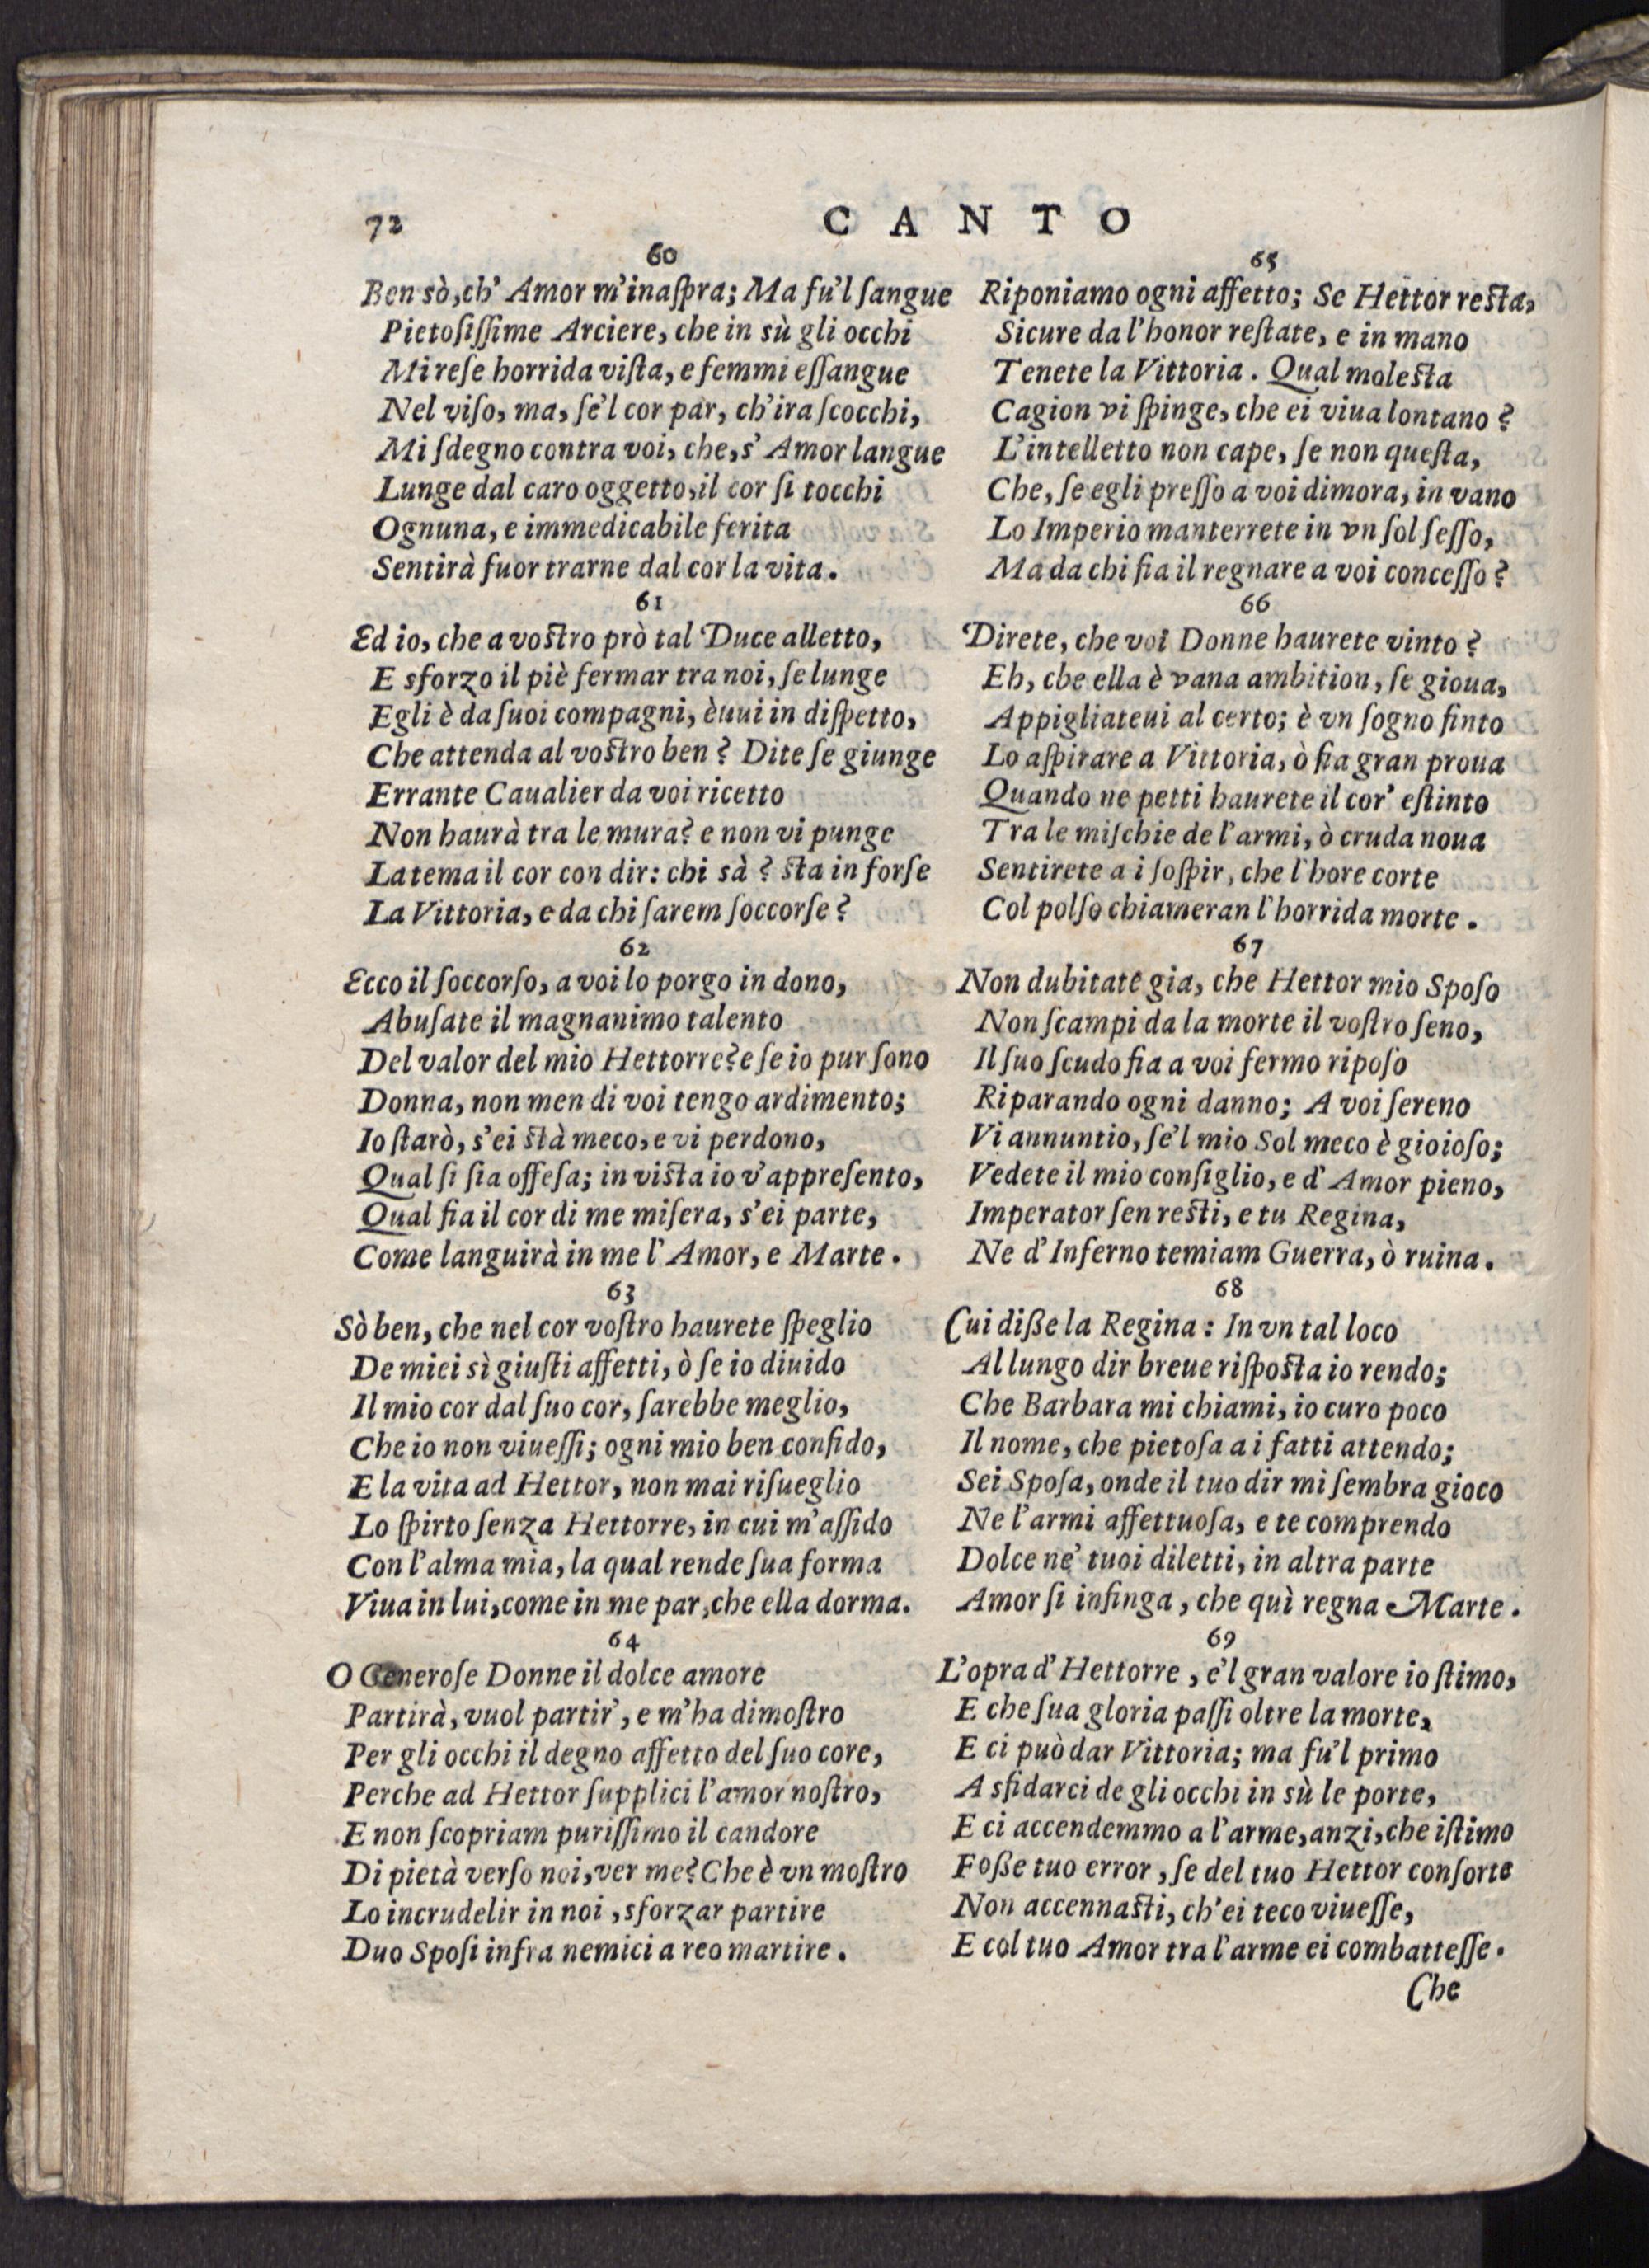 72
CANTO
60
Ben sò, ch' Amor m'inaſpra; Ma fu'l ſangue
Pietoſiſſime Arciere, che in sù gli occhi
Mi reſe horrida viſta, e femmi eſſangue
Nel viſo, ma, ſe'l cor par, ch'ira ſcocchi,
Mi ſdegno contra voi, che, s' Amor langue
Lunge dal caro oggetto, il cor ſi tocchi
Ognuna, e immedicabile ferita
Sentirà fuor trarne dal cor la vita.
61
Ed io, che a voſtro prò tal Duce alletto,
E sforzo il piè fermar tra noi, ſe lunge
Egli è da ſuoi compagni, èuui in diſpetto,
Che attenda al voſtro ben? Dite ſe giunge
Errante Caualier da voi ricetto
Non haurà tra le mura? e non vi punge
La tema il cor con dir: chi sà? ſta in forſe
La Vittoria, e da chi ſarem ſoccorſe?
62
Ecco il ſoccorſo, a voi lo porgo in dono,
Abuſate il magnanimo talento
Del valor del mio Hettorre? e ſe io pur ſono
Donna, non men di voi tengo ardimento;
Io ſtarò, s'ei ſtà meco, e vi perdono,
Qual ſi ſia offeſa; in viſta io v'appreſento,
Qual fia il cor di me miſera, s'ei parte,
Come languirà in me l' Amor, e Marte.
63
Sò ben, che nel cor voſtro haurete ſpeglio
De miei sì giuſti affetti, ò ſe io diuido
Il mio cor dal ſuo cor, ſarebbe meglio,
Che io non viueſſi; ogni mio ben confido,
E la vita ad Hettor, non mai riſueglio
Lo ſpirto ſenza Hettorre, in cui m'aſſido
Con l'alma mia, la qual rende ſua forma
Viua in lui, come in me par, che ella dorma.
64
O Generoſe Donne il dolce amore
Partirà, vuol partir', e m'ha dimoſtro
Per gli occhi il degno affetto del ſuo core,
Perche ad Hettor ſupplici l'amor noſtro,
E non ſcopriam puriſſimo il candore
Di pietà verſo noi, ver me? Che è vn moſtro
Lo incrudelir in noi, sforzar partire
Duo Spoſi infra nemici a reo martire.
65
Riponiamo ogni affetto; Se Hettor reſta,
Sicure da l'honor reſtate, e in mano
Tenete la Vittoria. Qual moleſta
Cagion vi ſpinge, che ei viua lontano?
L'intelletto non cape, ſe non queſta,
Che, ſe egli preſſo a voi dimora, in vano
Lo Imperio manterrete in vn ſol ſeſſo,
Ma da chi fia il regnare a voi conceſſo?
66
Direte, che voi Donne haurete vinto?
Eh, che ella è vana ambition, ſe gioua,
Appigliateui al certo; è vn ſogno finto
Lo aſpirare a Vittoria, ò fia gran proua
Quando ne petti haurete il cor' eſtinto
Tra le miſchie de l'armi, ò cruda noua
Sentirete a i ſoſpir, che l'hore corte
Col polſo chiameran l'horrida morte.
67
Non dubitate gia, che Hettor mio Spoſo
Non ſcampi da la morte il voſtro ſeno,
Il ſuo ſcudo fia a voi fermo ripoſo
Riparando ogni danno; A voi ſereno
Vi annuntio, ſe'l mio Sol meco è gioioſo;
Vedete il mio conſiglio, e d' Amor pieno,
Imperator ſen reſti, e tu Regina,
Ne d'Inferno temiam Guerra, ò ruina.
68
Cui diße la Regina: In vn tal loco
Al lungo dir breue riſpoſta io rendo;
Che Barbara mi chiami, io curo poco
Il nome, che pietoſa a i fatti attendo;
Sei Spoſa, onde il tuo dir mi ſembra gioco
Ne l'armi affettuoſa, e te comprendo
Dolce ne' tuoi diletti, in altra parte
Amor ſi infinga, che quì regna Marte.
69
L'opra d' Hettorre, e'l gran valore io ſtimo,
E che ſua gloria paſſi oltre la morte,
E ci può dar Vittoria; ma fu'l primo
A sfidarci de gli occhi in sù le porte,
E ci accendemmo a l'arme, anzi, che iſtimo
Foße tuo error, ſe del tuo Hettor conſorte
Non accennaſti, ch'ei teco viueſſe,
E col tuo Amor tra l'arme ei combatteſſe.
Che